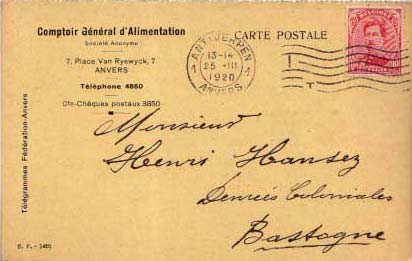 Comptoir Général d'Alimentation
Société Anonyme
7, Place Van Ryswyck, 7
ANVERS
Téléphone 4850
Cte-Chèques postaux 3850
Télégrammes Fédération-Anvers
CARTE POSTALE
1 ANTWERPEN 1
13-14
25 · III
1920
ANVERS
Monsieur
Henri Hansez
Denrées Coloniales
Bastogne